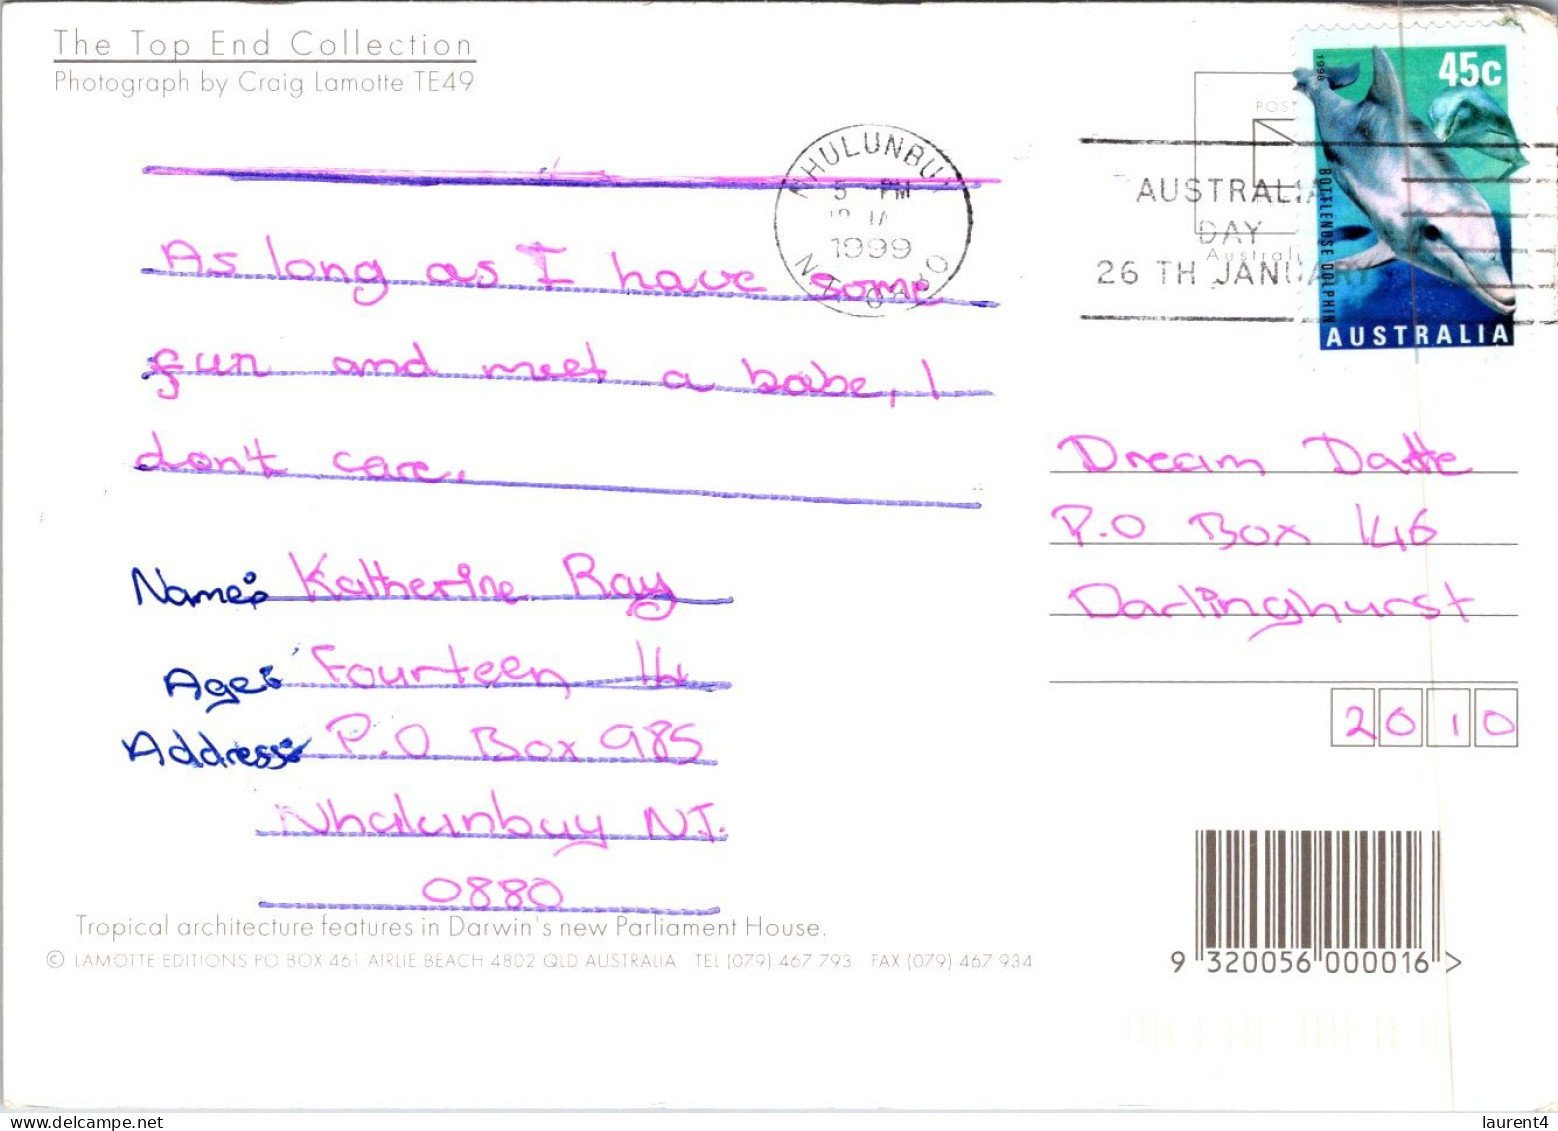 The Top End Collection
Photograph by Craig Lamotte TE49
45c
1998
BOTTLENOSE DOLPHIN
AUSTRALIA
POST
Australi
NHULUNBUY
5 - PM
1999
N.T. 0880
AUSTRALIA
DAY
26 TH JANUARY
As long as I have some
fun and meet a babe, I
don't care.
Name: Katherine Ray
Age: Fourteen 14
Address: P.O Box 985
Nhulunbuy N.T.
0880
Dream Datte
P.O Box 146
Darlinghurst
2010
Tropical architecture features in Darwin's new Parliament House.
© LAMOTTE EDITIONS PO BOX 461 AIRLIE BEACH 4802 QLD AUSTRALIA TEL (079) 467 793 FAX (079) 467 934
9 320056 000016 >
www.delcampe.net
laurent4